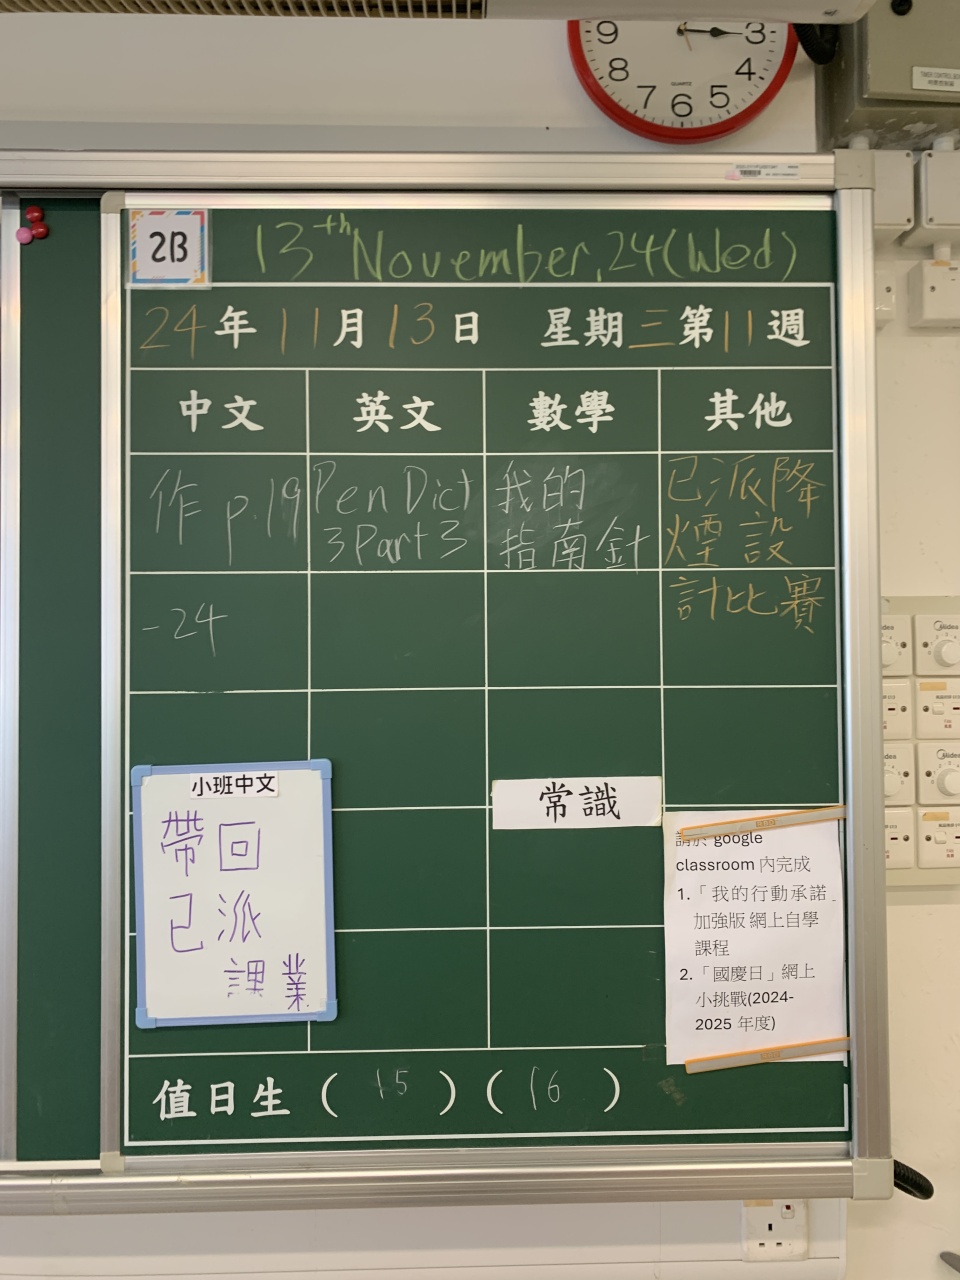 9 3
8 4
7 6 5
QUARTZ
2B
13th November, 24 (Wed)
24年 11月 13日 星期三 第11週
中文 英文 數學 其他
作 p.19
-24
Pen Dict
3 Part 3
我的
指南針
已派降
煙設
計比賽
小班中文
帶回
已派
課業
常識
請於 google
classroom 內完成
1.「我的行動承諾
加強版 網上自學
課程
2.「國慶日」網上
小挑戰(2024-
2025 年度)
值日生 ( 15 ) ( 16 )
Midea